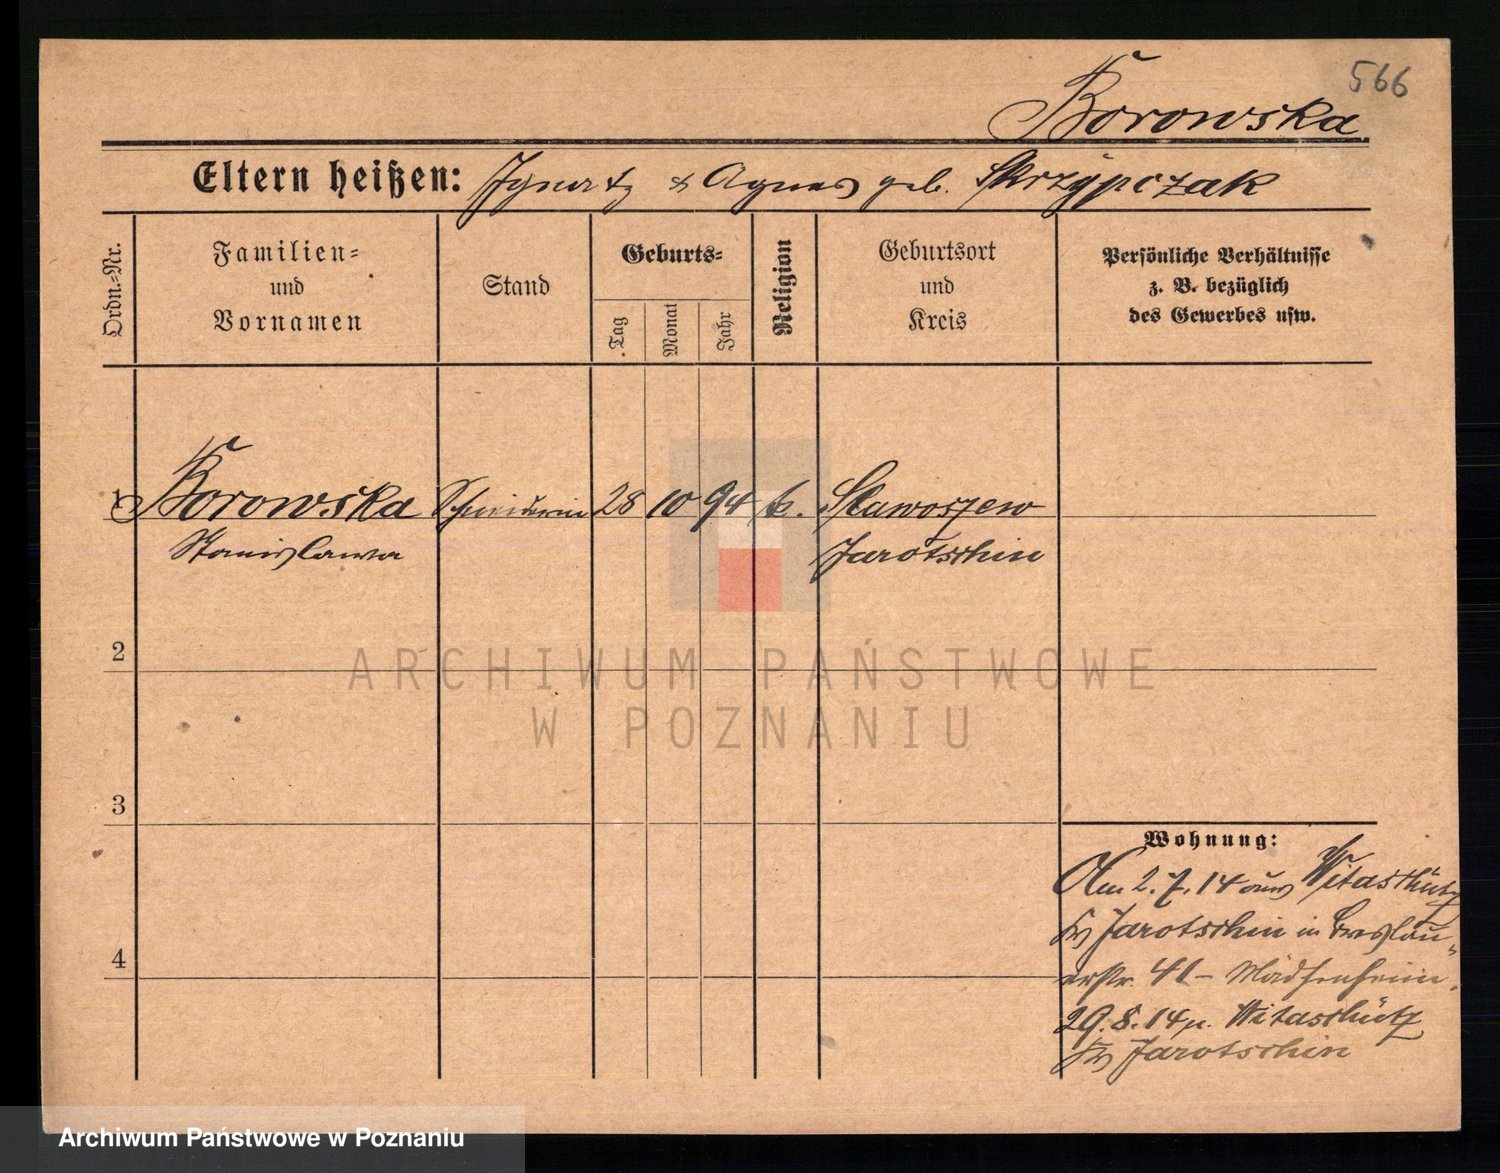 566
Borowska
Eltern heißen: Ignatz & Agnes geb. Skrzypczak
Ordn.-Nr.
Familien-
und
Vornamen
Stand
Geburts-
Tag
Monat
Jahr
Religion
Geburtsort
und
Kreis
Persönliche Verhältnisse
z. B. bezüglich
des Gewerbes usw.
1 Borowska Schneiderin 28 10 94 k. Slawoszew
Stanislawa Jarotschin
2
3
4
Wohnung:
Am 2.7.14 aus Witaschütz
Kr Jarotschin in Breslau-
erstr. 41 - Mädchenheim.
29.8.14 n. Witaschütz
Kr Jarotschin
ARCHIWUM PAŃSTWOWE
W POZNANIU
Archiwum Państwowe w Poznaniu